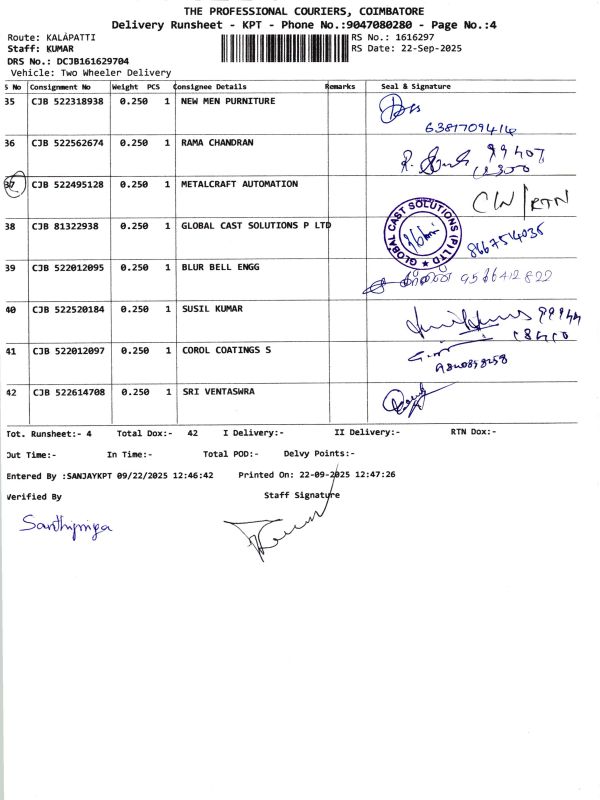 THE PROFESSIONAL COURIERS, COIMBATORE
Delivery Runsheet - KPT - Phone No.:9047080280 - Page No.:4
Route: KALAPATTI
RS No.: 1616297
Staff: KUMAR
RS Date: 22-Sep-2025
DRS No.: DCJB161629704
Vehicle: Two Wheeler Delivery
S No Consignment No Weight PCS Consignee Details Remarks Seal & Signature
35 CJB 522318938 0.250 1 NEW MEN PURNITURE
6381709414
36 CJB 522562674 0.250 1 RAMA CHANDRAN
37 CJB 522495128 0.250 1 METALCRAFT AUTOMATION
CN/RTN
38 CJB 81322938 0.250 1 GLOBAL CAST SOLUTIONS P LTD
GLOBAL CAST SOLUTIONS (P) LTD
8667514035
39 CJB 522012095 0.250 1 BLUR BELL ENGG
9566412822
40 CJB 522520184 0.250 1 SUSIL KUMAR
41 CJB 522012097 0.250 1 COROL COATINGS S
42 CJB 522614708 0.250 1 SRI VENTASWRA
Tot. Runsheet:- 4 Total Dox:- 42 I Delivery:- II Delivery:- RTN Dox:-
Out Time:- In Time:- Total POD:- Delvy Points:-
Entered By :SANJAYKPT 09/22/2025 12:46:42 Printed On: 22-09-2025 12:47:26
Verified By Staff Signature
Santhipriya